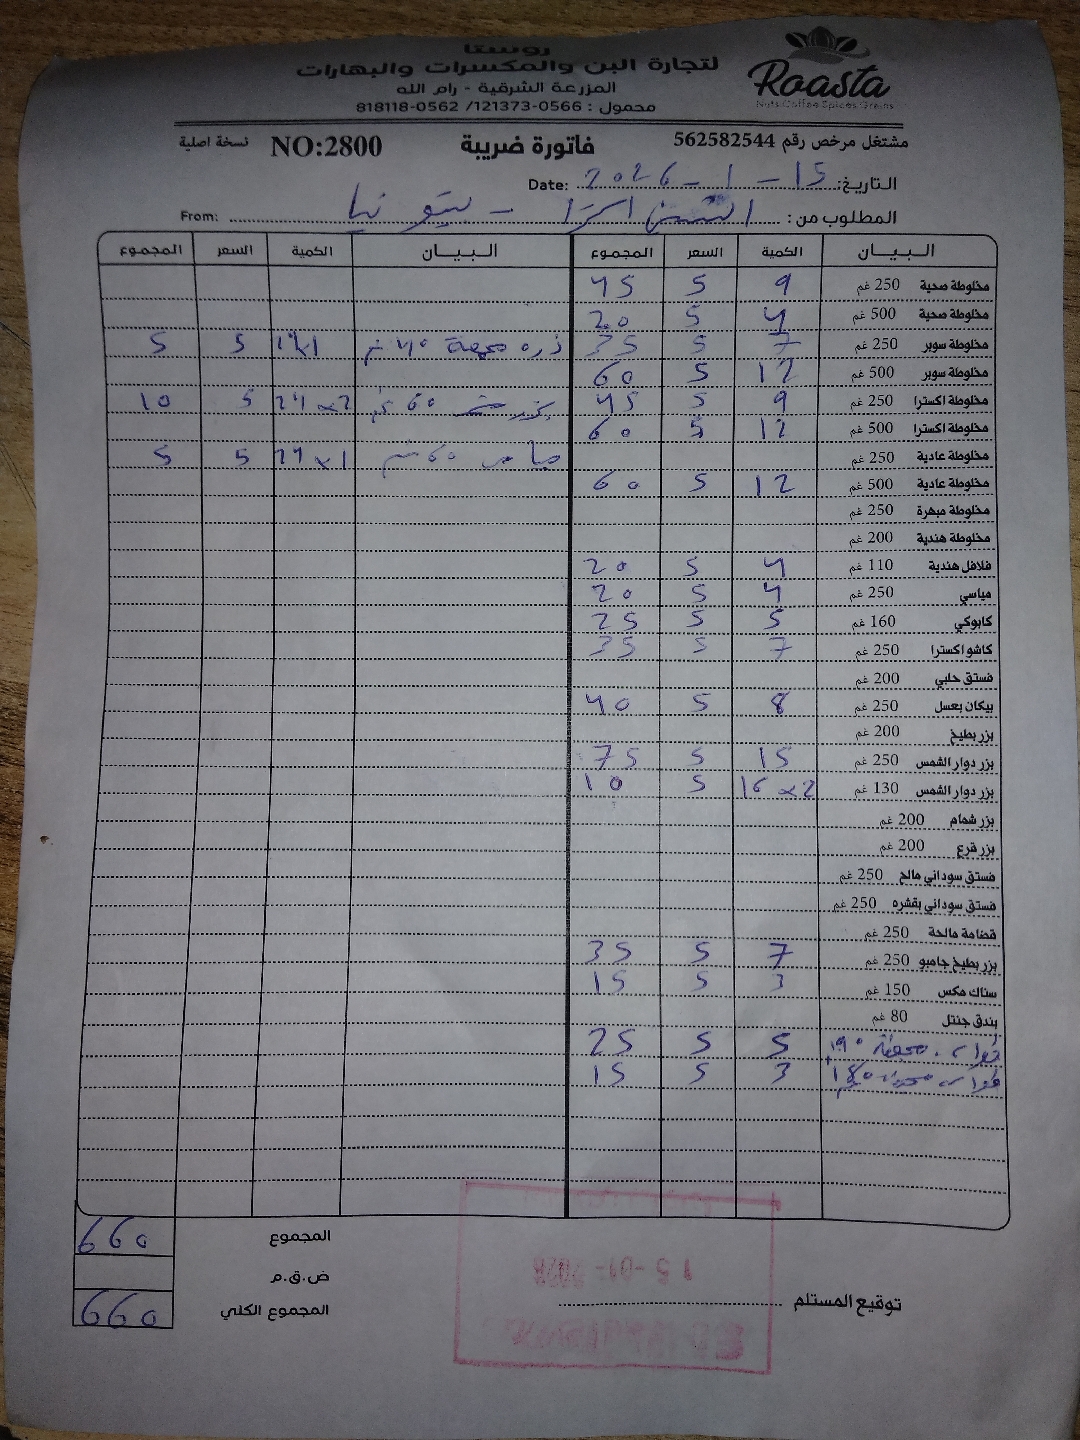 روستا
لتجارة البن والمكسرات والبهارات
المزرعة الشرقية - رام الله
محمول : 0566-121373/ 0562-818118
Roasta
Nuts Coffee Spices Grains
مشتغل مرخص رقم 562582544 فاتورة ضريبة NO:2800 نسخة اصلية
التاريخ: 15 - 1 - 2026 Date:
المطلوب من : From:
البيان الكمية السعر المجموع البيان الكمية السعر المجموع
مخلوطة صحية 250 غم 9 5 45
مخلوطة صحية 500 غم 4 5 20
مخلوطة سوبر 250 غم 7 5 35 ذره 40 غم 5 5
مخلوطة سوبر 500 غم 12 5 60
مخلوطة اكسترا 250 غم 9 5 45 بزر 60 غم 24x2 5 10
مخلوطة اكسترا 500 غم 12 5 60
مخلوطة عادية 250 غم 60 24x1 5 5
مخلوطة عادية 500 غم 12 5 60
مخلوطة مبهرة 250 غم
مخلوطة هندية 200 غم
فلافل هندية 110 غم 4 5 20
مياسي 250 غم 4 5 20
كابوكي 160 غم 5 5 25
كاشو اكسترا 250 غم 7 5 35
فستق حلبي 200 غم
بيكان بعسل 250 غم 8 5 40
بزر بطيخ 200 غم
بزر دوار الشمس 250 غم 15 5 75
بزر دوار الشمس 130 غم 16x2 5 10
بزر شمام 200 غم
بزر قرع 200 غم
فستق سوداني مالح 250 غم
فستق سوداني بقشره 250 غم
قضامة مالحة 250 غم
بزر بطيخ جامبو 250 غم 7 5 35
سناك مكس 150 غم 3 5 15
بندق جنتل 80 غم
5 5 25
3 5 15
المجموع 660
ض.ق.م
المجموع الكلي 660
توقيع المستلم